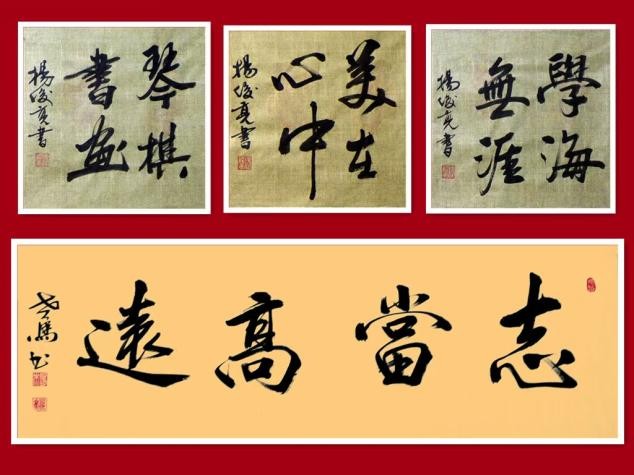 琴棋
書画
楊俊亮書
美在
心中
楊俊亮書
學海
無涯
楊俊亮書
志當高遠